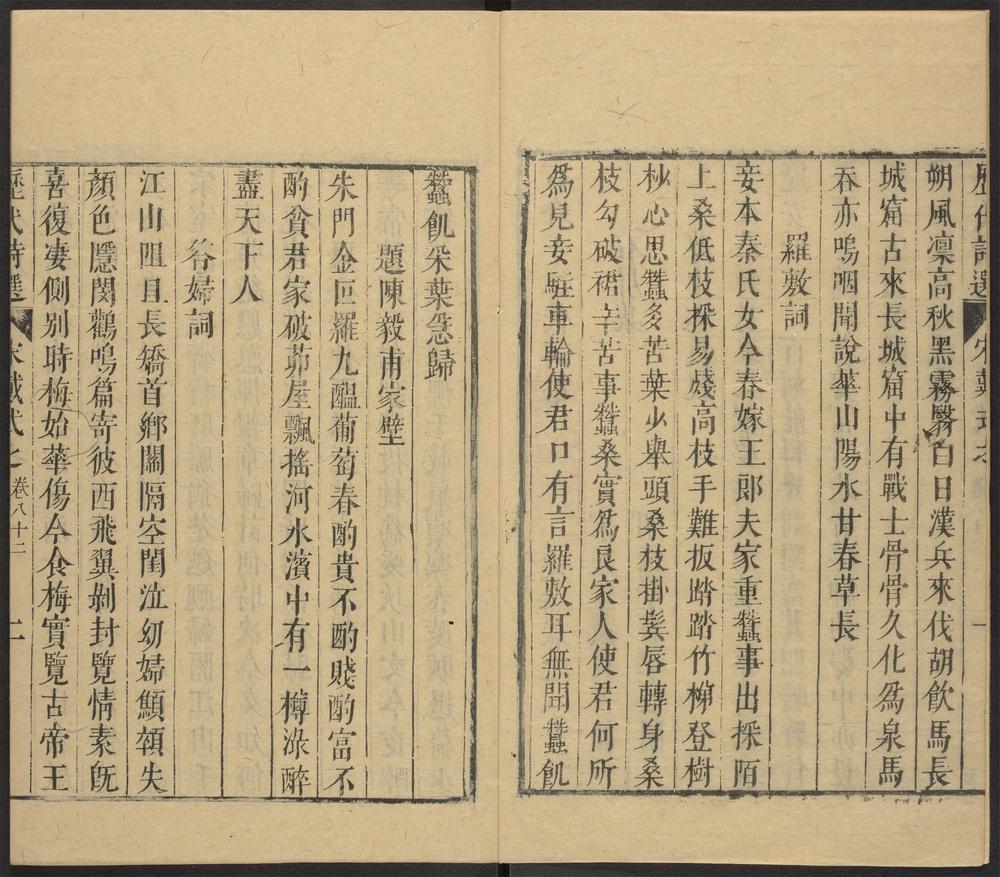 歷代詩選 宋戴式之 一
朔風凛高秋黑霧翳白日漢兵來伐胡飲馬長
城窟古來長城窟中有戰士骨骨久化爲泉馬
吞亦嗚咽聞說華山陽水甘春草長
羅敷詞
妾本秦氏女今春嫁王郎夫家重蠶事出採陌
上桑低枝採易殘高枝手難扳踏踏竹梯登樹
杪心思蠶多苦葉少舉頭桑枝掛鬓唇轉身桑
枝勾破裙辛苦事蠶桑實爲良家人使君何所
爲見妾駐車輪使君口有言羅敷耳無聞蠶飢
蠶飢采葉急歸
題陳毅甫家壁
朱門金叵羅九醖葡萄春酌貴不酌賤酌富不
酌貧君家破茆屋飄搖河水濱中有一樽渌醉
盡天下人
答婦詞
江山阻且長矯首鄉關隔空閨泣幼婦顦顇失
顏色隱閔鸛鳴篇寄彼西飛翼剝封覽情素旣
喜復凄側别時梅始華傷今食梅實覽古帝王
歷代詩選 宋戴式之 卷八十二 二